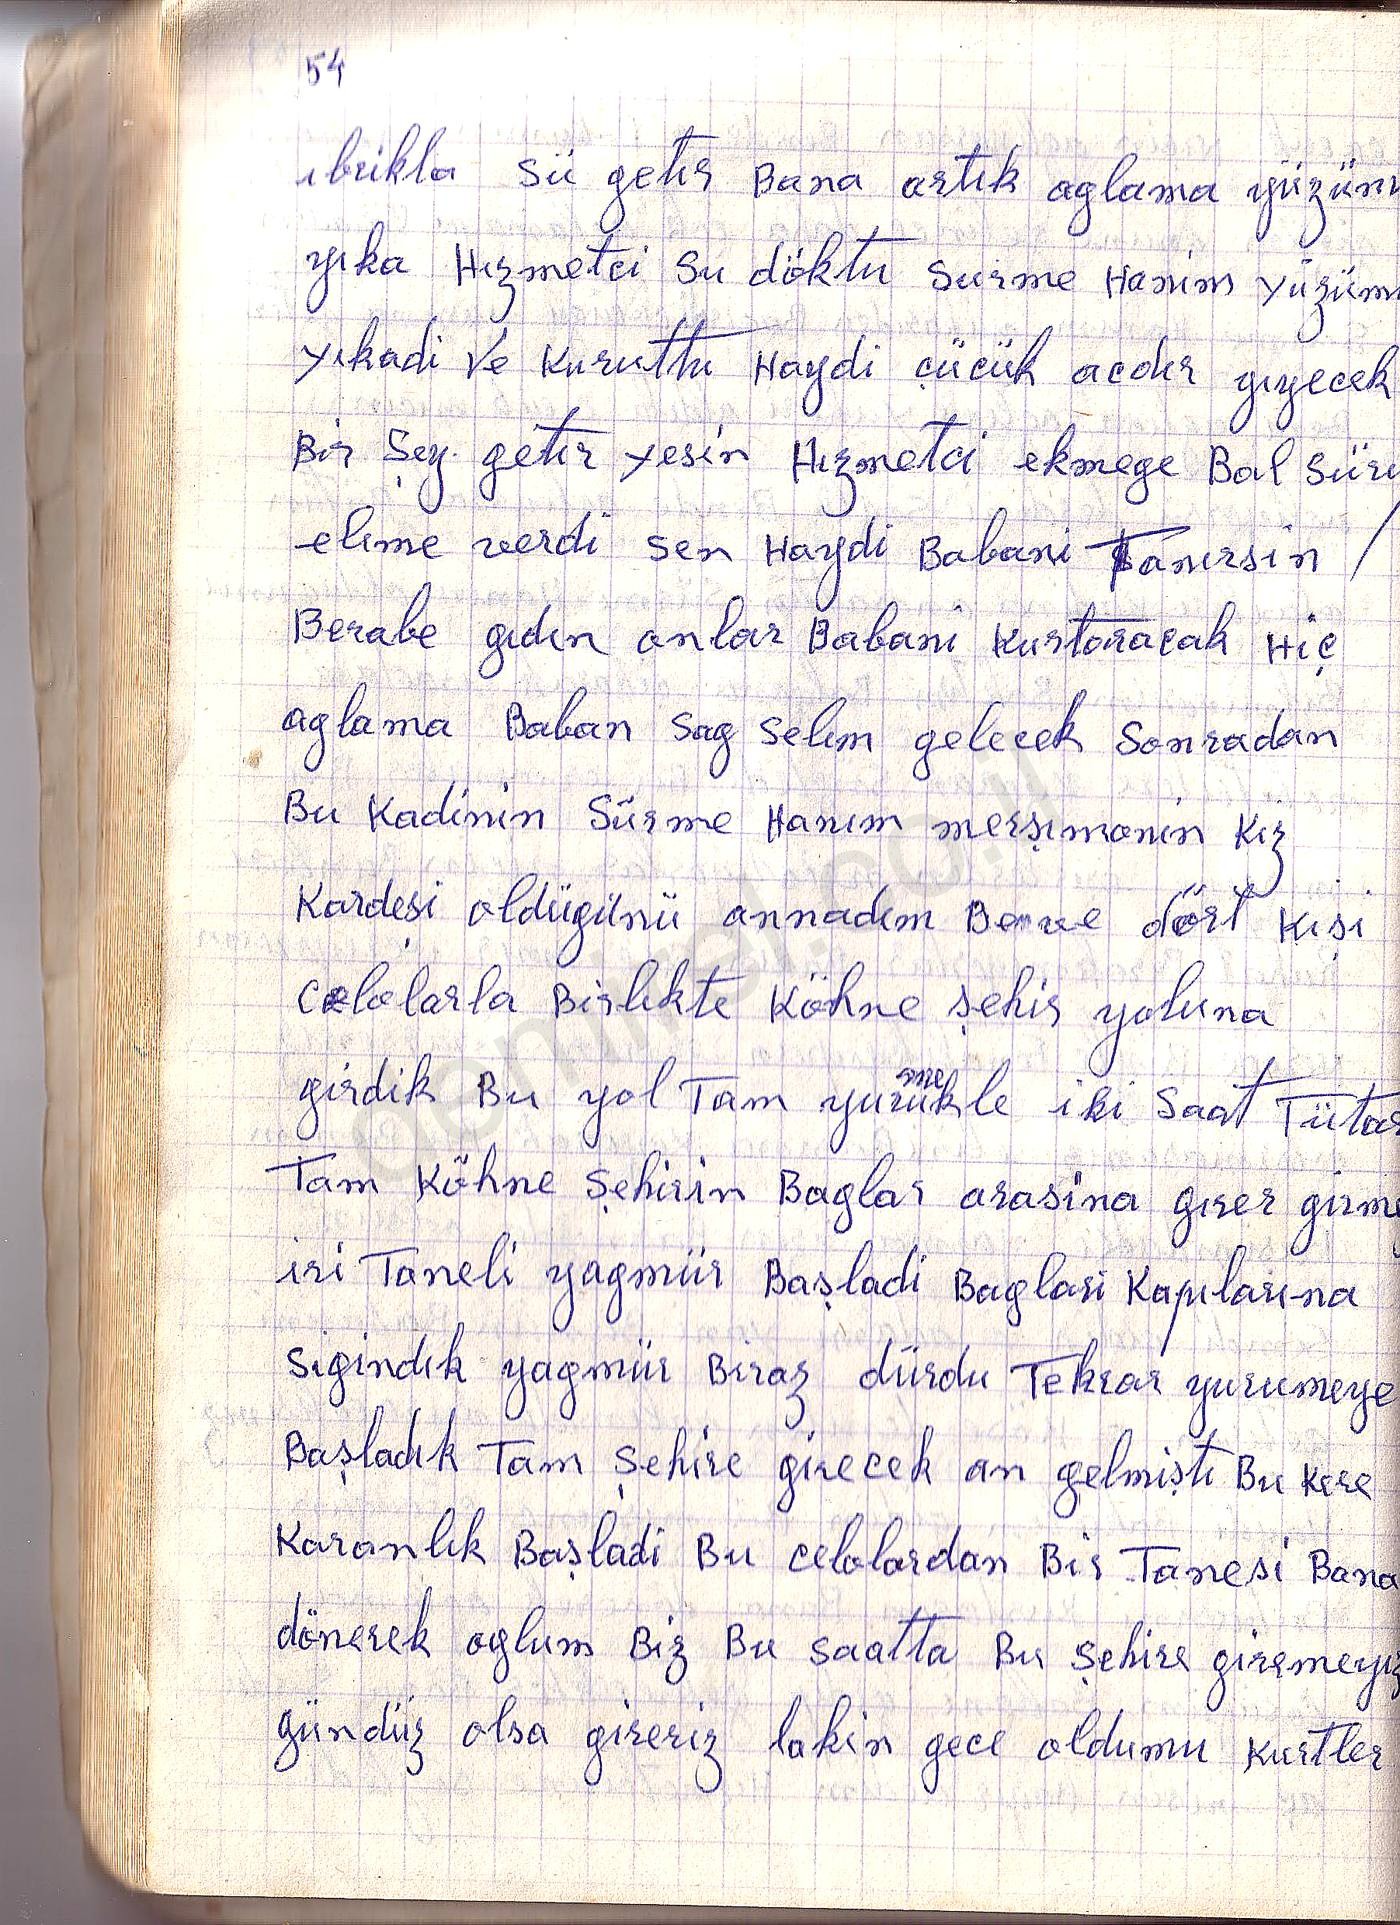 54
ibrikla sü getır Bana artık aglama yüzünü
yıka Hızmetci Su döktu Surme Hanım yüzümü
yıkadi Ve Kuruttu Haydi çücük acdır yıyecek
Bir Şey getır yesin Hızmetci ekmege Bal Sürü
elıme verdi sen Haydi Babani Tanırsin /
Berabe gıdın onlar Babani Kurtaracak Hiç
aglama Baban Sag Selım gelecek Sonradan
Bu Kadinin Sürme Hanım merşımonin Kız
Kardeşi oldügünü annadım Ben ve dört Kişi
Celolarla Birlıkte Köhne şehir yoluna
girdik Bu yol Tam yurümekle iki Saat Tütar
Tam Köhne Şehirin Baglar arasina gırer girme
iri Taneli yagmür Başladi Baglari Kapılarına
Sigindık yagmür Biraz dürdu Tekrar yurumeye
Başladık Tam Şehire girecek an gelmiştı Bu Kere
Karanlık Başladi Bu celolardan Bir Tanesi Bana
dönerek oglum Biz Bu saatta Bu Şehire giremeyız
gündüz olsa gireriz lakin gece oldumu Kurtler